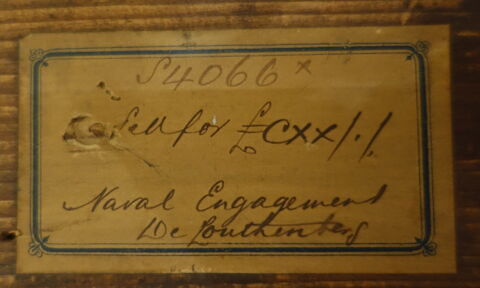 S4066 x
Sell for £CXX/./.
Naval Engagement
De Louthenberg